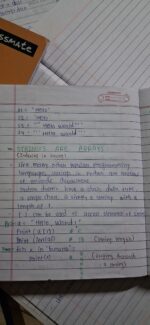 ssmate
s1 = 'Hello'
s2 = "Hello"
s3 = ''' Hello World '''
s4 = """ Hello World """
STRINGS ARE ARRAYS
Like many other popular programming
languages, strings in Python are
of unicode characters
Python doesn't have a char data type,
a single char is simply a string with a
length of 1.
[ ] can be used to access elements of string
a = "Hello, World!"
Print (a[1])
Print (len(a)) # 13 (String length)
for x in "banana":
print(x)